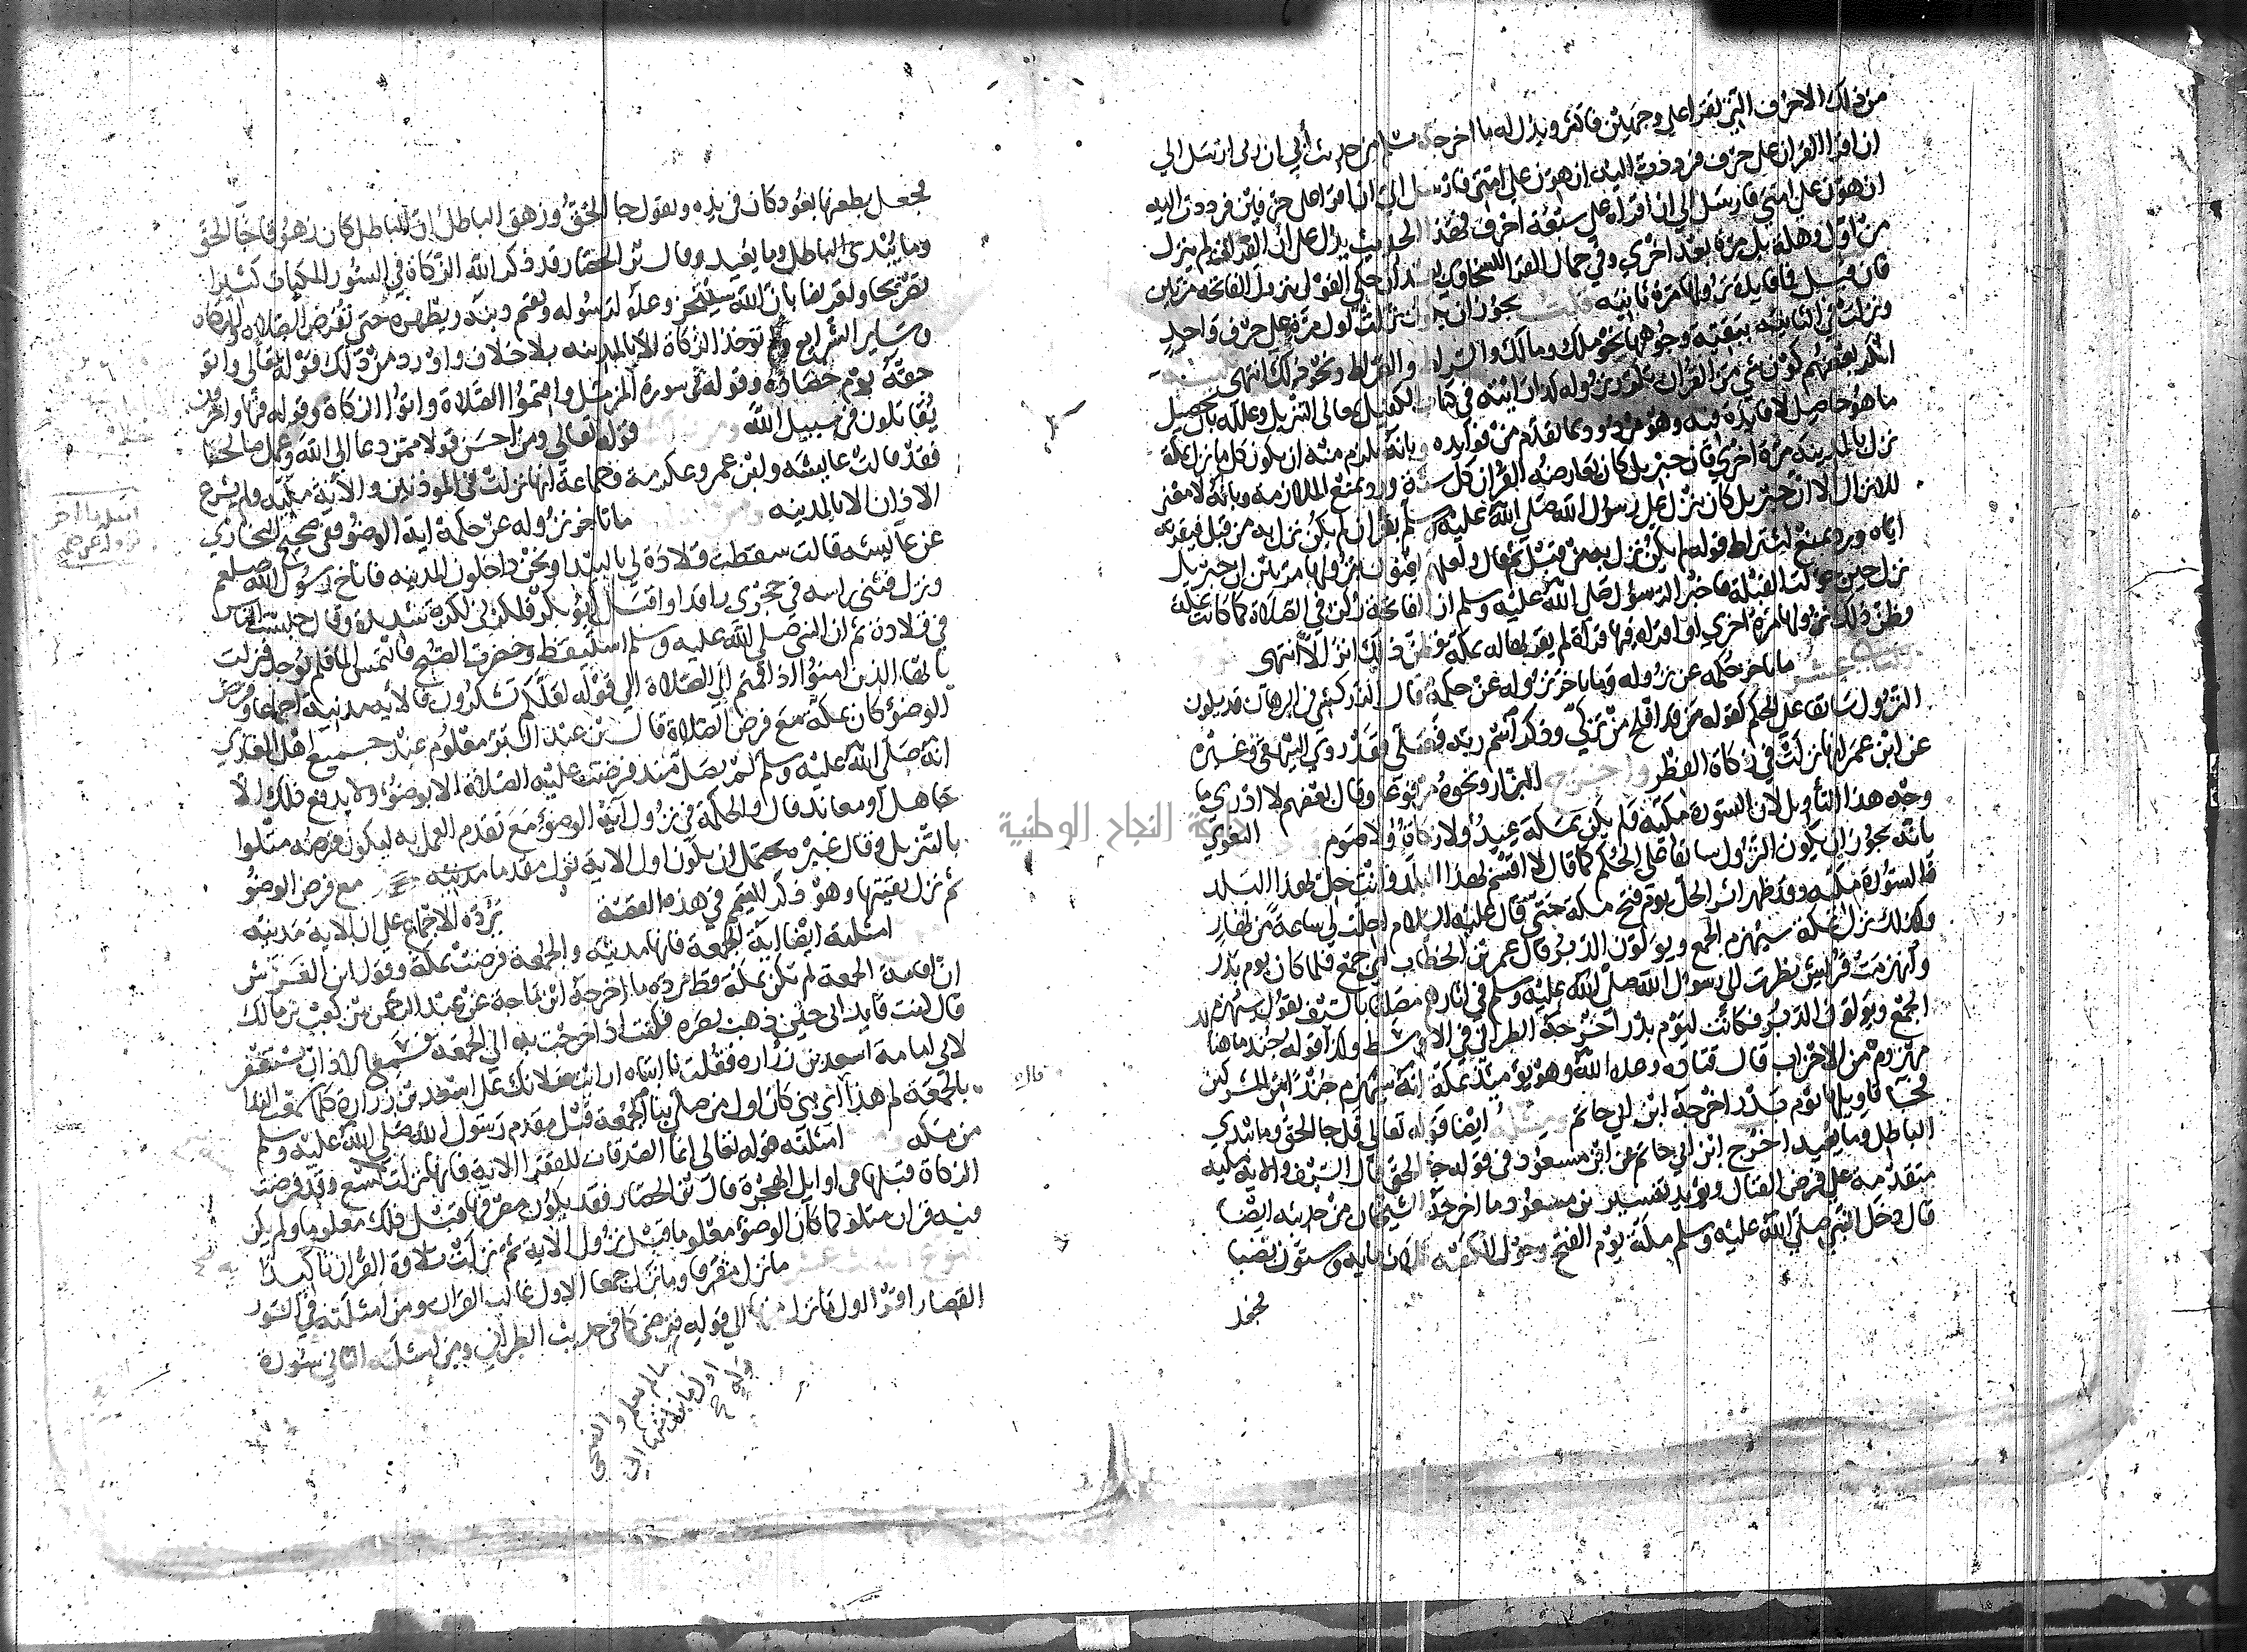 من ذلك الاحرف التي تقرا علي وجهين فاكثر ويدل له ما اخرجه مسلم من حديث أبي ان ربي ارسل الي
ان اقرا القران على حرف فرددت اليه ان هون علي امتي فارسل الي ان اقرا على حرفين فرددت اليه
ان هون علي امتي فارسل الي ان اقراه على سبعة احرف فهذا الحديث يدل على ان القران لم ينزل
من اول وهلة بل مرة بعد اخري وفي جمال القرا للسخاوي بعد ان حكى القول بنزول الفاتحة مرتين
فان قيل فما فايدة نزولها مرة ثانيه قلت يجوز ان يكون نزلت اول مرة على حرف واحد
ونزلت في الثانيه ببقية وجوهها نحو ملك ومالك والسراط والصراط ونحو ذلك انتهى
انكر بعضهم كون شي من القران تكرر نزوله كذا رايته في كتاب الكفيل بمعاني التنزيل وعلله بان تحصيل
ما هو حاصل لا فايدة فيه وهو مردود بما تقدم من فوايده وبانه يلزم منه ان يكون كل ما نزل بمكة
نزل بالمدينه مرة اخري فان جبريل كان يعارضه القران كل سنة ورد بمنع الملازمه وبانه لا معنى
للانزال الا ان جبريل كان ينزل على رسول الله صلى الله عليه وسلم بقران لم يكن نزل به من قبل فيقريه
اياه ورد بمنع اشتراط قوله لم يكن نزل به من قبل ثم قال ولعلهم يعنون بنزولها مرتين ان جبريل
نزل حين حولت القبلة فاخبر الرسول صلى الله عليه وسلم ان الفاتحة ركن في الصلاة كما كانت بمكة
وظن ذلك نزولها مرة اخري او اقراه فيها قراة لم يقريها له بمكة فظن ذلك انزالا انتهى
ما تاخر حكمه عن نزوله وما تاخر نزوله عن حكمه قال الزركشي في البرهان قد يكون
النزول سابقا على الحكم كقوله قد افلح من تزكي وذكر اسم ربه فصلى فقد روي البيهقي وغيره
عن ابن عمر انها نزلت في زكاة الفطر واخرج البزار ونحوه مرفوعا وقال بعضهم لا ادري ما
وجه هذا التأويل لان السورة مكية ولم يكن بمكة عيد ولا زكاة ولا صوم البغوي
بانه يجوز ان يكون النزول سابقا على الحكم كما قال لا اقسم بهذا البلد وانت حل بهذا البلد
فالسورة مكية وقد ظهر اثر الحل يوم فتح مكة حتى قال عليه السلام احلت لي ساعة من نهار
وكذلك نزل بمكة سيهزم الجمع ويولون الدبر قال عمر بن الخطاب اي جمع فلما كان يوم بدر
وانهزمت قريش نظرت الى رسول الله صلى الله عليه وسلم في اثارهم مصلتا بالسيف يقول سيهزم
الجمع ويولون الدبر فكانت ليوم بدر اخرجه الطبراني في الاوسط وكذا قوله جند ما هنالك
مهزوم من الاحزاب قال قتاده وعده الله وهو يومئذ بمكة انه سيهزم جندا من المشركين
فجا تاويلها يوم بدر اخرجه ابن ابي حاتم ومثله ايضا قوله تعالى قل جا الحق وما يبدي
الباطل وما يعيد اخرج ابن ابي حاتم عن ابن مسعود في قوله جا الحق قال السيف والاية مكيه
متقدمة على فرض القتال ويؤيد تفسير بن مسعود ما اخرجه الشيخان من حديثه ايضا
قال دخل النبي صلى الله عليه وسلم مكة يوم الفتح وحول الكعبه ثلاث مايه وستون نصبا
فجعل
فجعل يطعنها بعود كان في يده ويقول جا الحق وزهق الباطل ان الباطل كان زهوقا جا الحق
وما يبدئ الباطل وما يعيد وقال بن الحصار قد ذكر الله الزكاة في السور المكيات كثيرا
تصريحا وتعريضا بان الله سينجز وعده لرسوله ويقيم دينه ويظهره حتى تفرض الصلاة والزكاه
وساير الشرايع ولم توخذ الزكاة الا بالمدينه بلا خلاف واورد من ذلك قوله تعالى واتوا
حقه يوم حصاده وقوله في سورة المزمل واقيموا الصلاة واتوا الزكاة وقوله فيها واخرون
يقاتلون في سبيل الله ومن ذلك قوله تعالى ومن احسن قولا ممن دعا الى الله وعمل صالحا
فقد قالت عايشه وابن عمر وعكرمة وجماعة انها نزلت في الموذنين والاية مكيه ولم يشرع
الاذان الا بالمدينه ما تاخر نزوله عن حكمه اية الوضو ففي صحيح البخاري
عن عايشه قالت سقطت قلادة لي بالبيدا ونحن داخلون المدينه فاناخ رسول الله صلعم
ونزل فثنى راسه في حجري راقدا واقبل ابو بكر فلكزني لكزة شديدة وقال حبست الناس
في قلادة ثم ان النبي صلى الله عليه وسلم استيقظ وحضرت الصبح فالتمس الما فلم يوجد فنزلت
يا ايها الذين امنوا اذا قمتم الى الصلاة الي قوله لعلكم تشكرون فالايه مدنية اجماعا وفرض
الوضو كان بمكة مع فرض الصلاة قال بن عبد البر معلوم عند جميع اهل المغازي
انه صلى الله عليه وسلم لم يصل منذ فرضت عليه الصلاة الا بوضو ولا يدفع ذلك الا
جاهل او معاند قال والحكمة في نزول اية الوضو مع تقدم العمل به ليكون فرضه متلوا
بالتنزيل وقال غيره يحتمل ان يكون اول الاية نزل مقدما مع فرض الوضو
ثم نزل بقيتها وهو ذكر التيمم في هذه القصة يرده الاجماع على ان الاية مدنيه
امثلته ايضا اية الجمعة فانها مدنيه والجمعة فرضت بمكة وقول ابن الفرس
ان اقامة الجمعة لم تكن بمكة قط يرده ما اخرجه ابن ماجة عن عبد الرحمن بن كعب بن مالك
قال كنت قايد ابي حين ذهب بصره فكنت اذا خرجت به الي الجمعه فسمع الاذان يستغفر
لابي امامة اسعد بن زراره فقلت يا ابتاه ارايت صلاتك على اسعد بن زرارة كلما سمعت الندا
بالجمعة لم هذا قال اي بني كان اول من صلى بنا الجمعة قبل مقدم رسول الله صلى الله عليه وسلم
من مكه امثلته قوله تعالى انما الصدقات للفقرا الاية فانها نزلت سنة تسع وقد فرضت
الزكاة قبلها في اوايل الهجرة قال بن الحصار فقد يكون مصرفها قبل ذلك معلوما ولم يكن
فيه قران متلو كما كان الوضو معلوما قبل نزول الاية ثم نزلت تلاوة القران تاكيدا
ما نزل مفرقا وما نزل جمعا الاول غالب القران ومن امثلته في السور
القصار اقرا اول ما نزل منها الي قوله فترضى كما في حديث الطبراني ومن امثلته الثاني سورة
قال
جامعة النجاح الوطنية